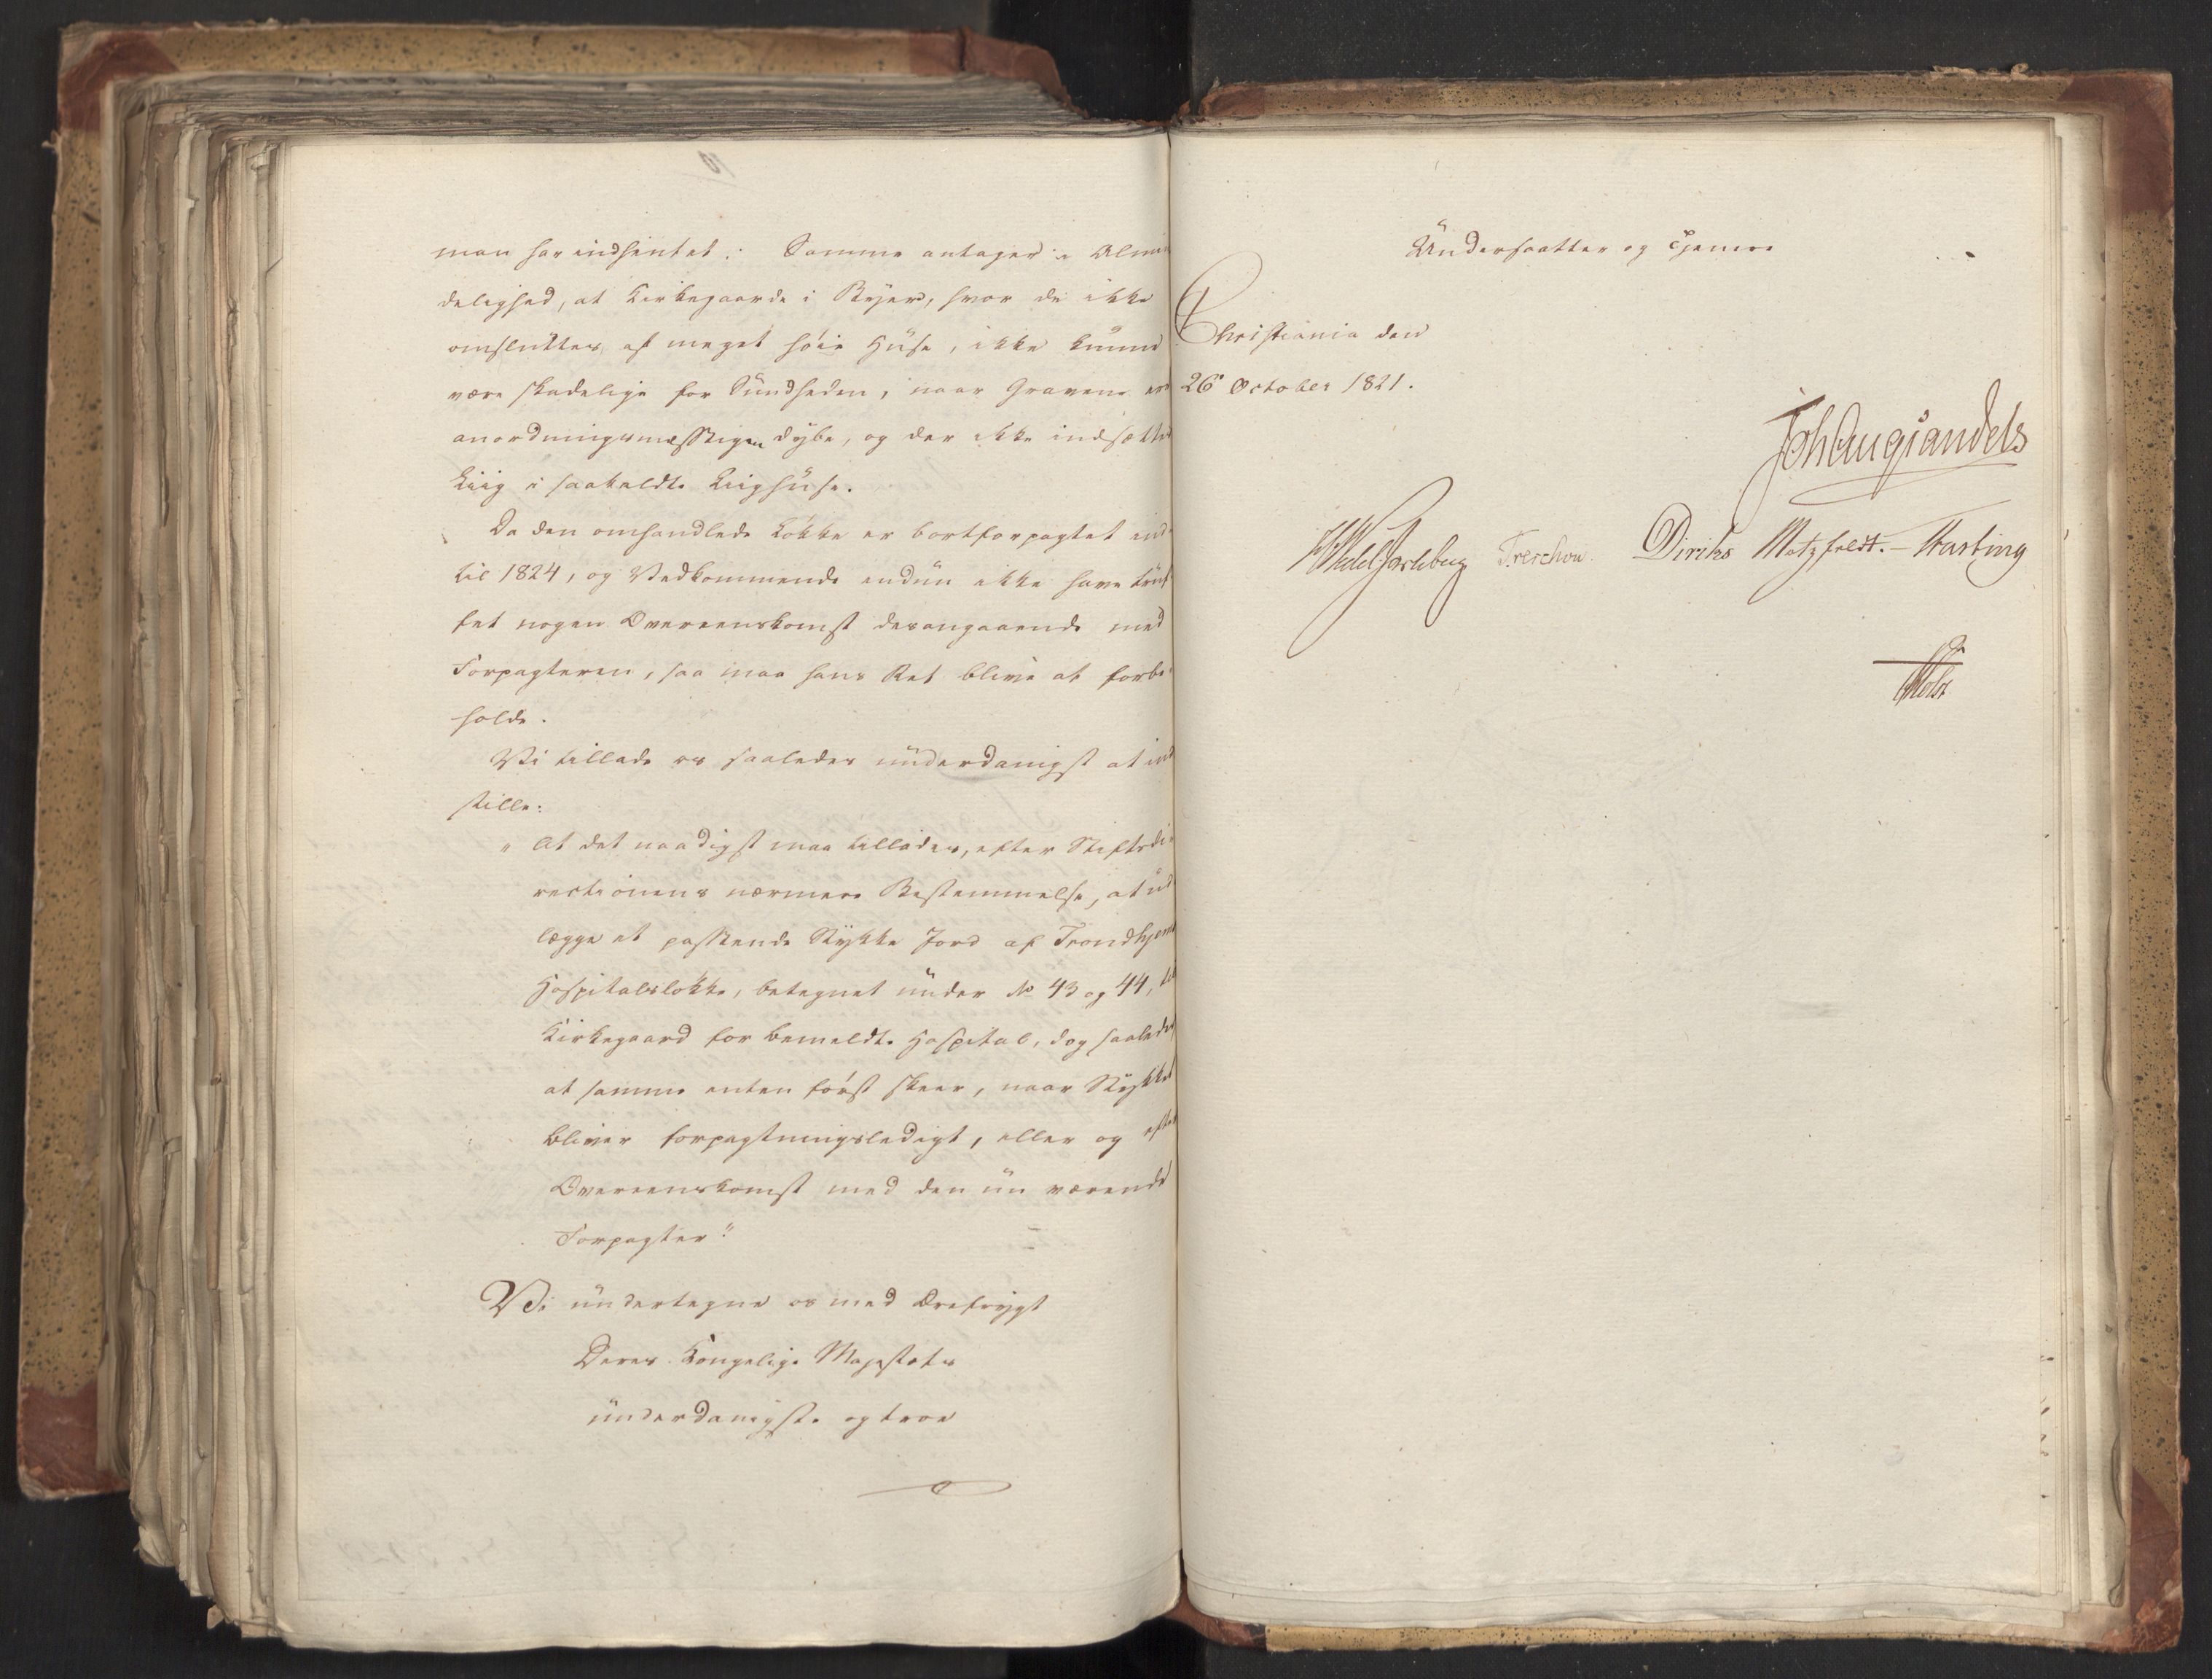 man har indhentet. Samme antager i Almin
delighed, at Kirkegaarde i Byer, hvor de ikke
omsluttes af meget høie Huse, ikke kunne
være skadelige for Sundheden, naar Gravene ere
anordningsmæssigen dybe, og der ikke indsættes
Liig i saakaldte Liighuse.
Da den omhandlede Løkke er bortforpagtet ind-
til 1824, og Vedkommende endnu ikke have truf
fet nogen Overeenskomst desangaaende med
Forpagteren, saa maa hans Ret blive at forbe-
holde.
Vi tillade os saaledes underdanigst at ind
stille:
" At det naadigst maa tillades, efter Stiftsdi-
rectionens nærmere Bestemmelse, at ud
lægge et passende Stykke Jord af Trondhjems
Hospitalsløkke, betegnet under No 43 og 44, til
Kirkegaard for bemeldte Hospital, dog saaledes
at samme enten først skeer, naar Stykket
bliver forpagtningsledigt, eller og efter
Overeenskomst med den nu værende
Forpagter."
Vi undertegne os med Ærefrygt
Deres Kongelige Majestæts
underdanigste og troe
Undersaatter og Tjenere
Christiania den
26 October 1821.
Joh Aug Sandels
Wedel Jarlsberg Treschow Diriks Motzfeldt. Fasting
Holst